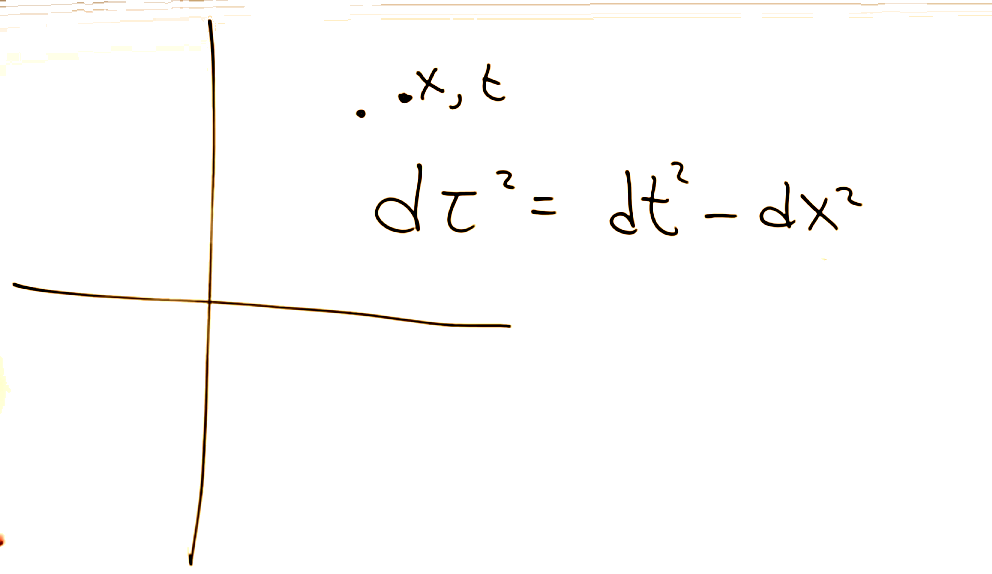 x, t
dτ² = dt² - dx²